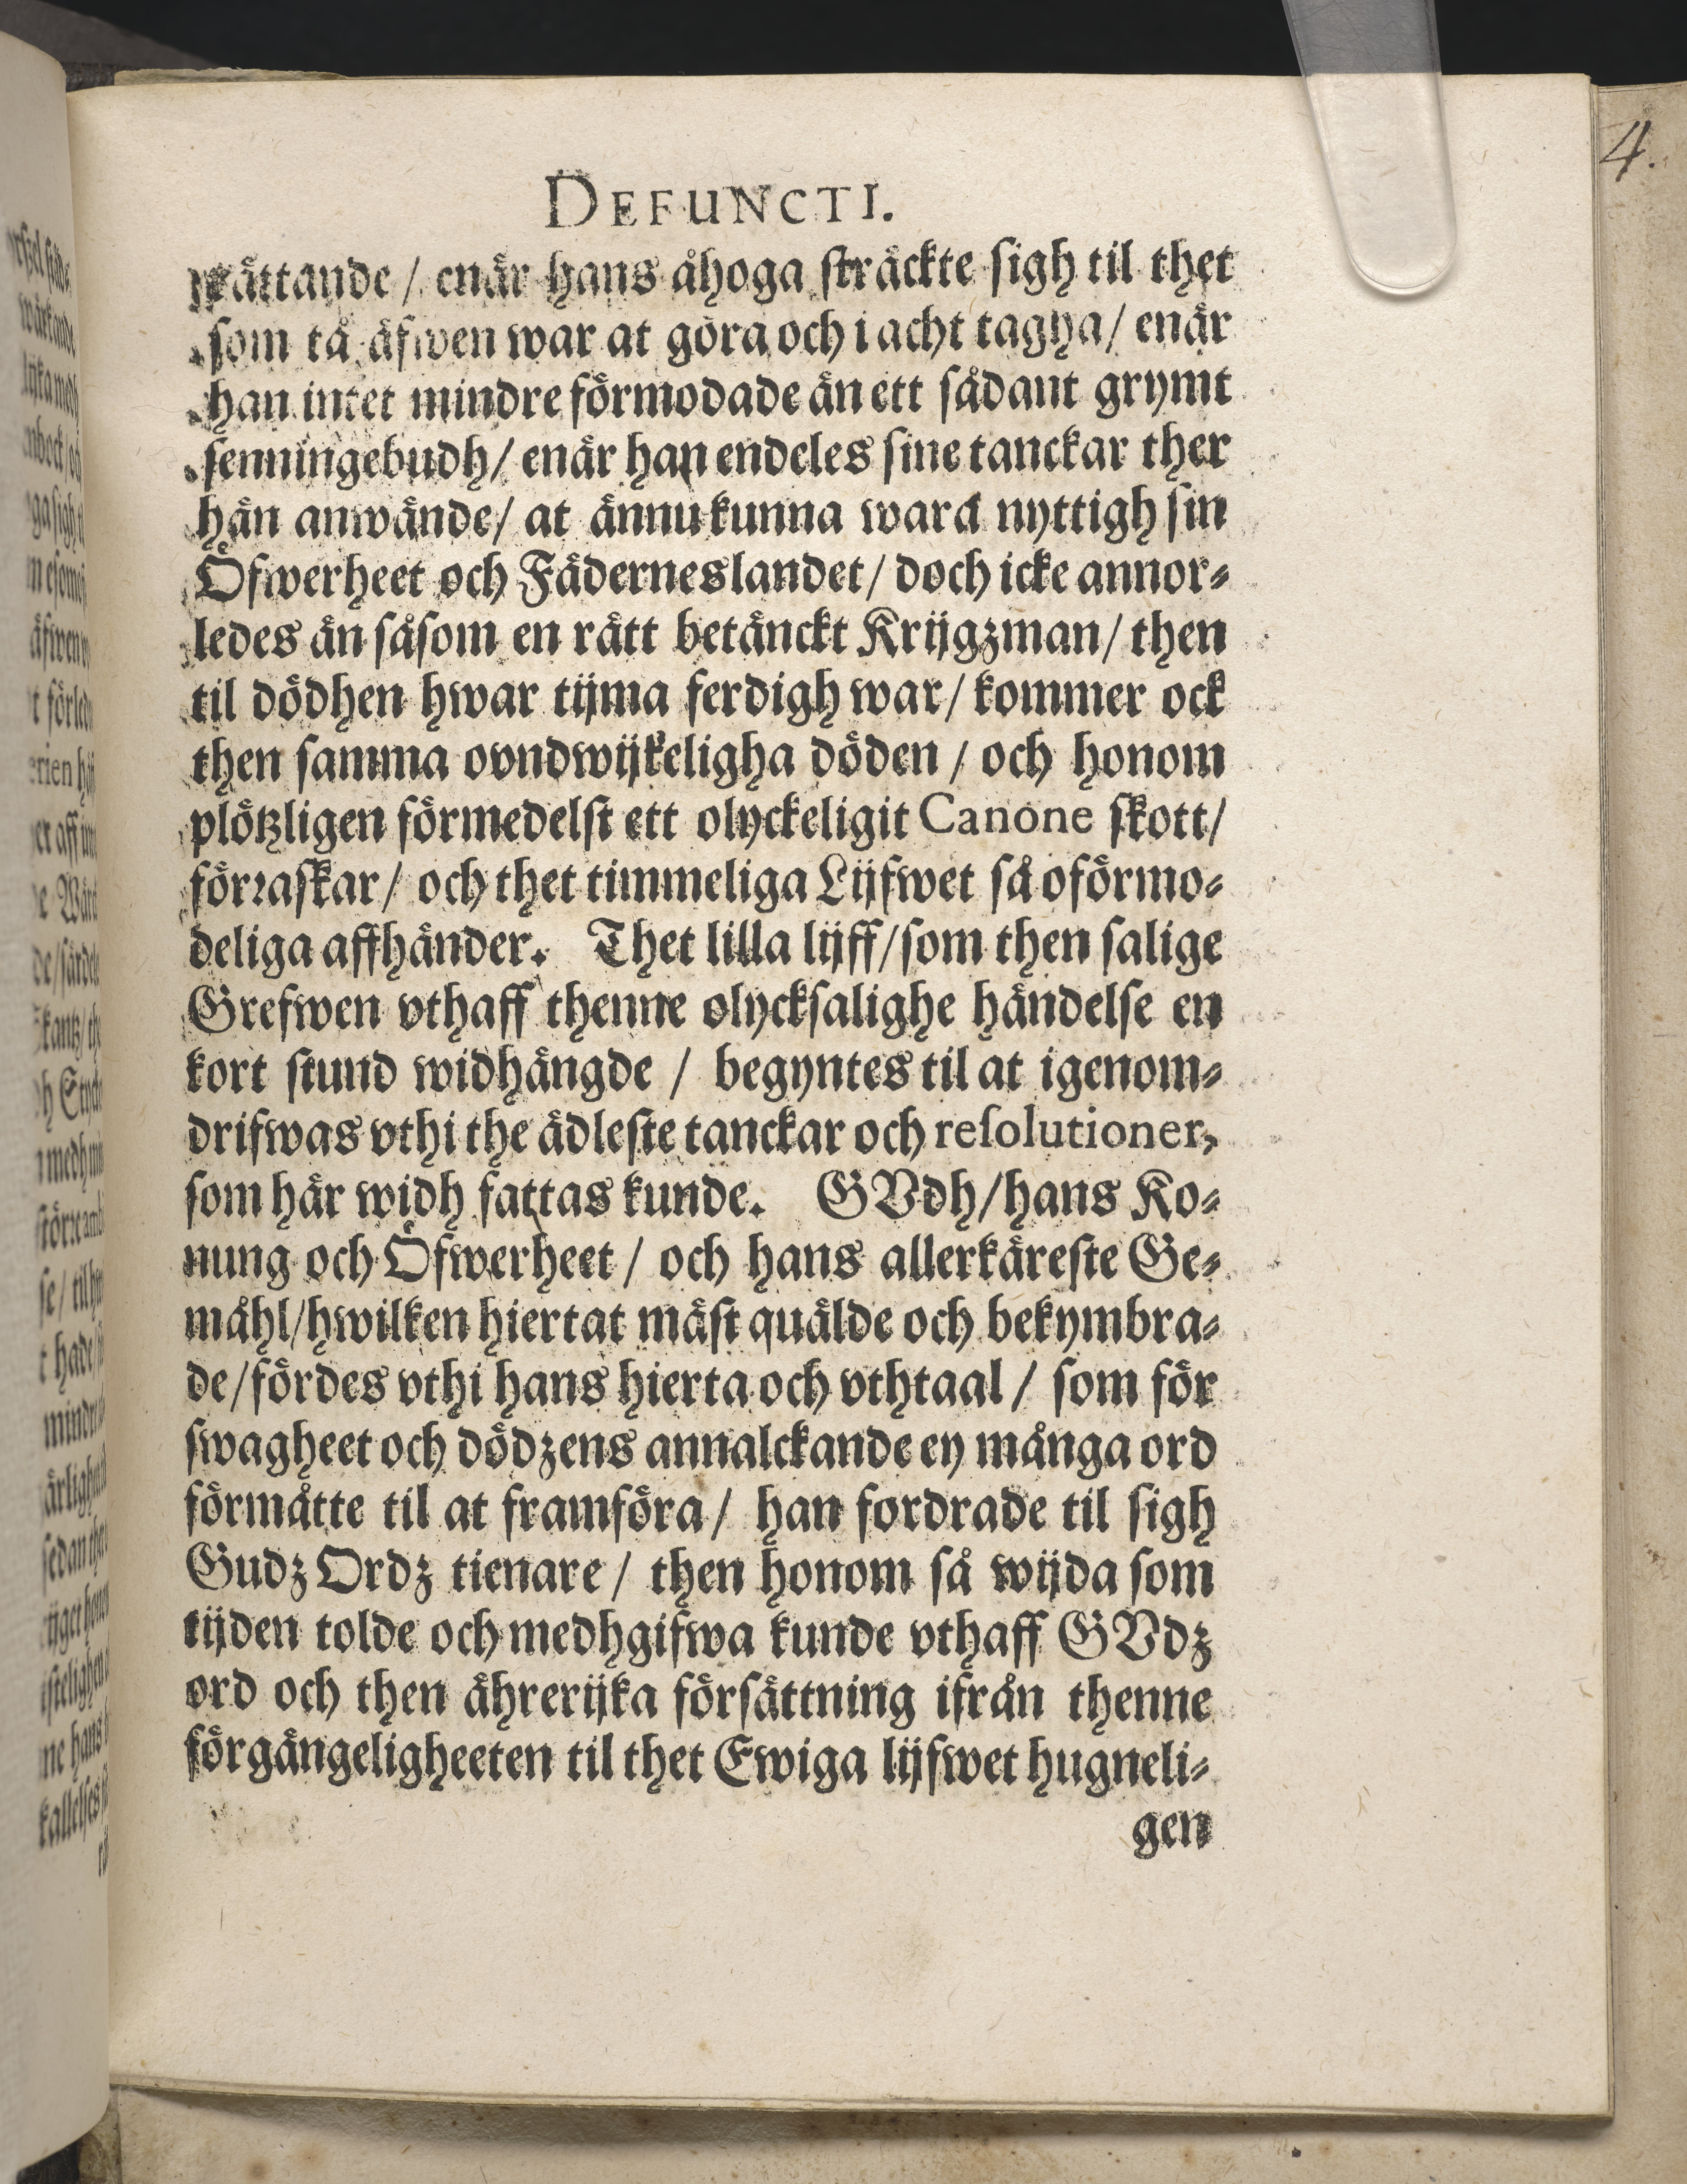 4.
DEFUNCTI.
rättande / enär hans åhoga sträckte sigh til thet
som tå äfwen war at göra och i acht tagha / enär
han intet mindre förmodade än ett sådant grymt
senningebudh / enär han endeles sine tanckar ther
hän anwände / at ännu kunna wara nyttigh sin
Öfwerheet och Fäderneslandet / doch icke annor-
ledes än såsom en rätt betänckt Krijgzman / then
til dödhen hwar tijma ferdigh war / kommer ock
then samma ovndwijkeligha döden / och honom
plötzligen förmedelst ett olyckeligit Canone skott /
förraskar / och thet timmeliga Lijfwet så oförmo-
deliga affhänder. Thet lilla lijff / som then salige
Grefwen vthaff thenne olycksalighe händelse en
kort stund widhängde / begyntes til at igenom-
drifwas vthi the ädleste tanckar och resolutioner,
som här widh fattas kunde. GVdh / hans Ko-
nung och Öfwerheet / och hans allerkäreste Ge-
måhl / hwilken hiertat mäst quälde och bekymbra-
de / fördes vthi hans hierta och vthtaal / som för
swagheet och dödzens annalckande ey många ord
förmåtte til at framföra / han fordrade til sigh
Gudz Ordz tienare / then honom så wijda som
tijden tolde och medhgifwa kunde vthaff GVdz
ord och then ährerijka försättning ifrån thenne
förgängeligheeten til thet Ewiga lijfwet hugneli-
gen